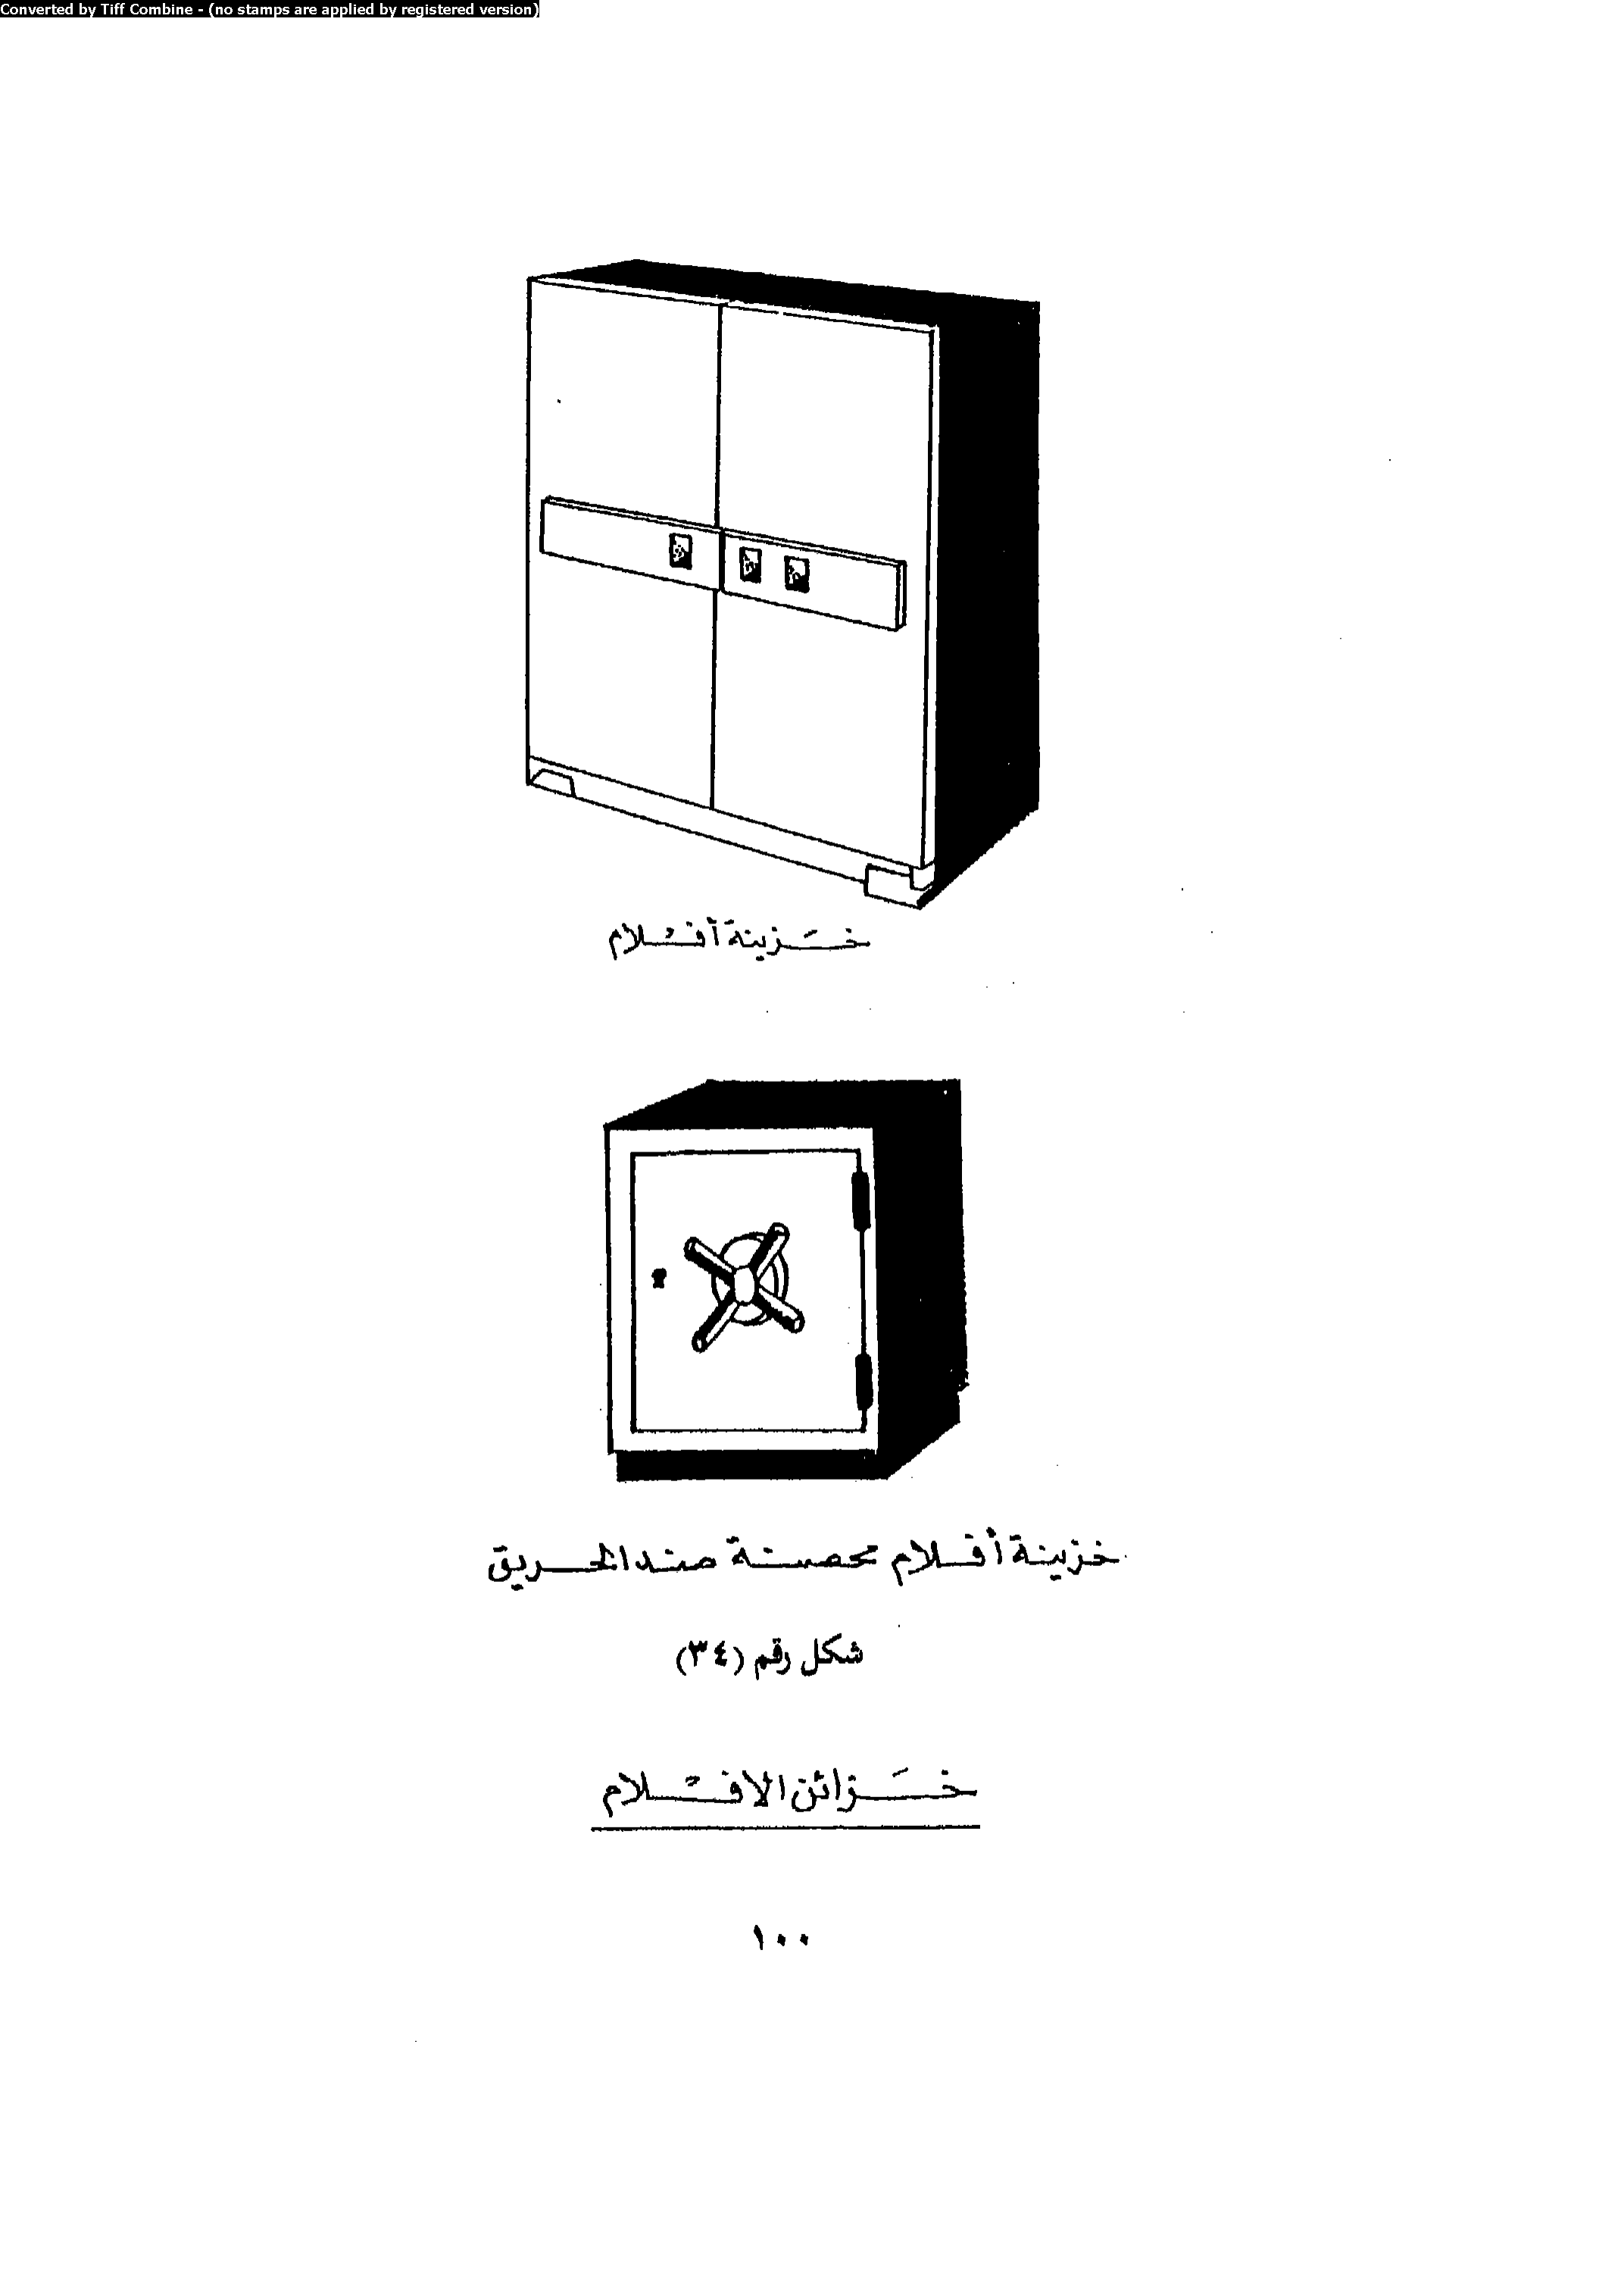 Converted by Tiff Combine - (no stamps are applied by registered version)
خزينة أفلام
خزينة أفلام محصنة ضد الحريق
شكل رقم (٣٤)
خزائن الافلام
١٠٠